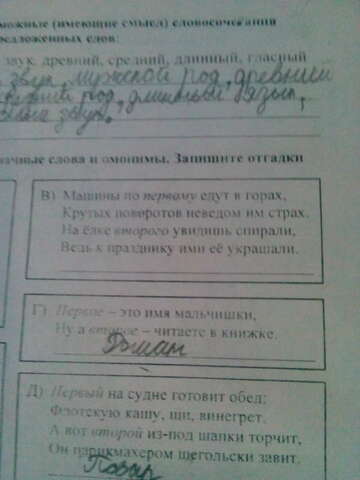 можные (имеющие смысл) словосочетания
едложенных слов:
звук, древний, средний, длинный, гласный
звук, мужской род, древний
средний род, длинный язык,
звук.
начные слова и омонимы. Запишите отгадки
В) Машины по первому едут в горах,
Крутых поворотов неведом им страх.
На ёлке второго увидишь спирали,
Ведь к празднику ими её украшали.
Г) Первое – это имя мальчишки,
Ну а второе – читаете в книжке.
Роман
Д) Первый на судне готовит обед:
Флотскую кашу, щи, винегрет.
А вот второй из-под шапки торчит,
Он парикмахером щегольски завит.
Повар